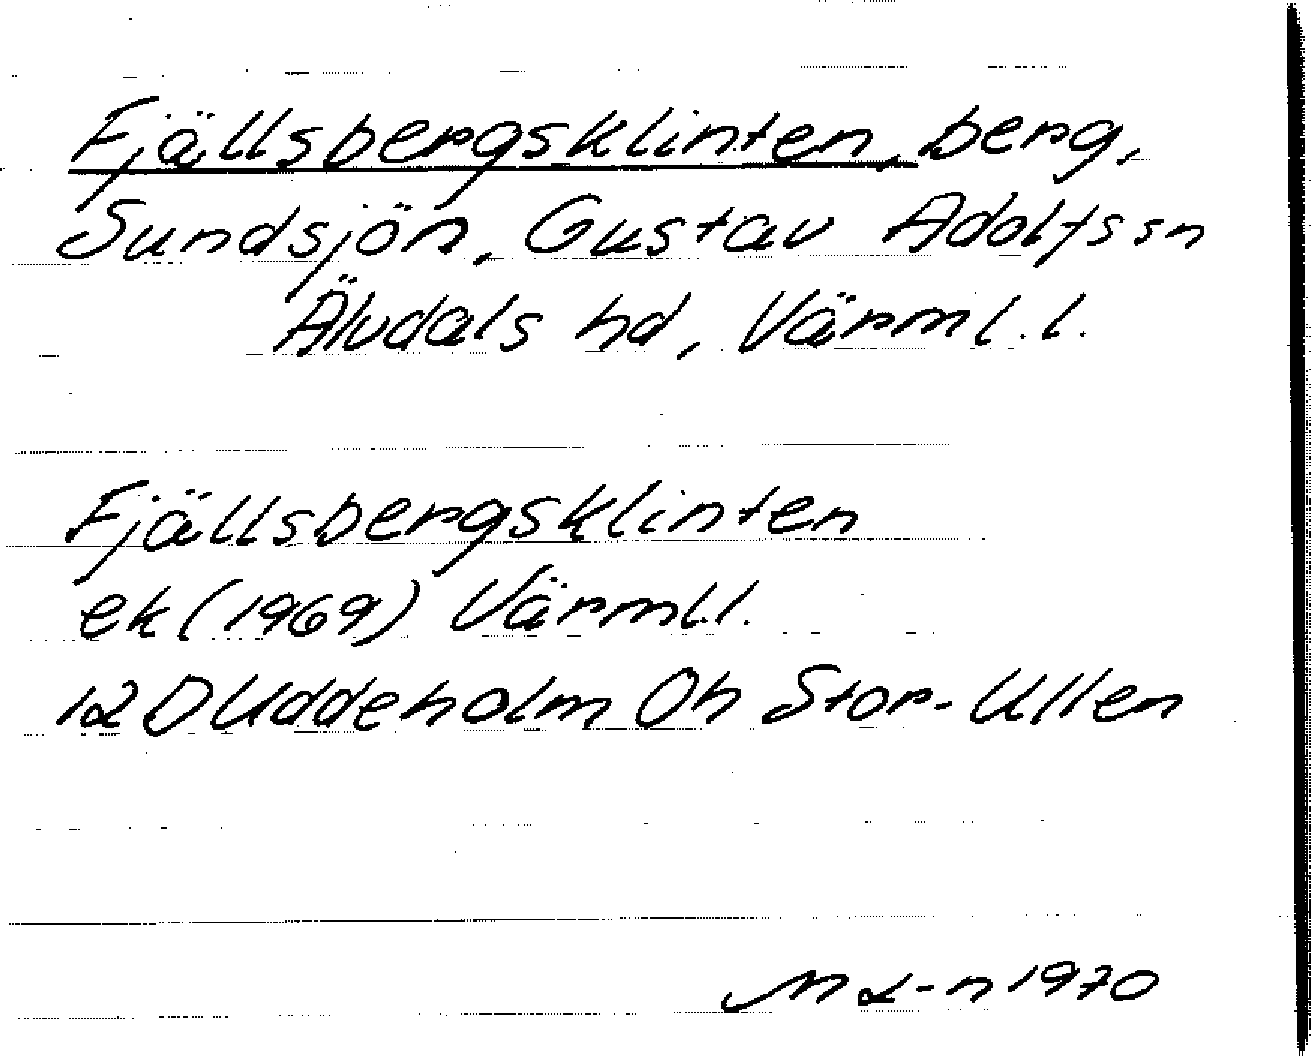 Fjällsbergsklinten, berg,
Sundsjön, Gustav Adolfs sn
Älvdals hd, Värml. l.
Fjällsbergsklinten
ek (1969) Värml.l.
12 D Uddeholm Oh Stor-Ullen
1970